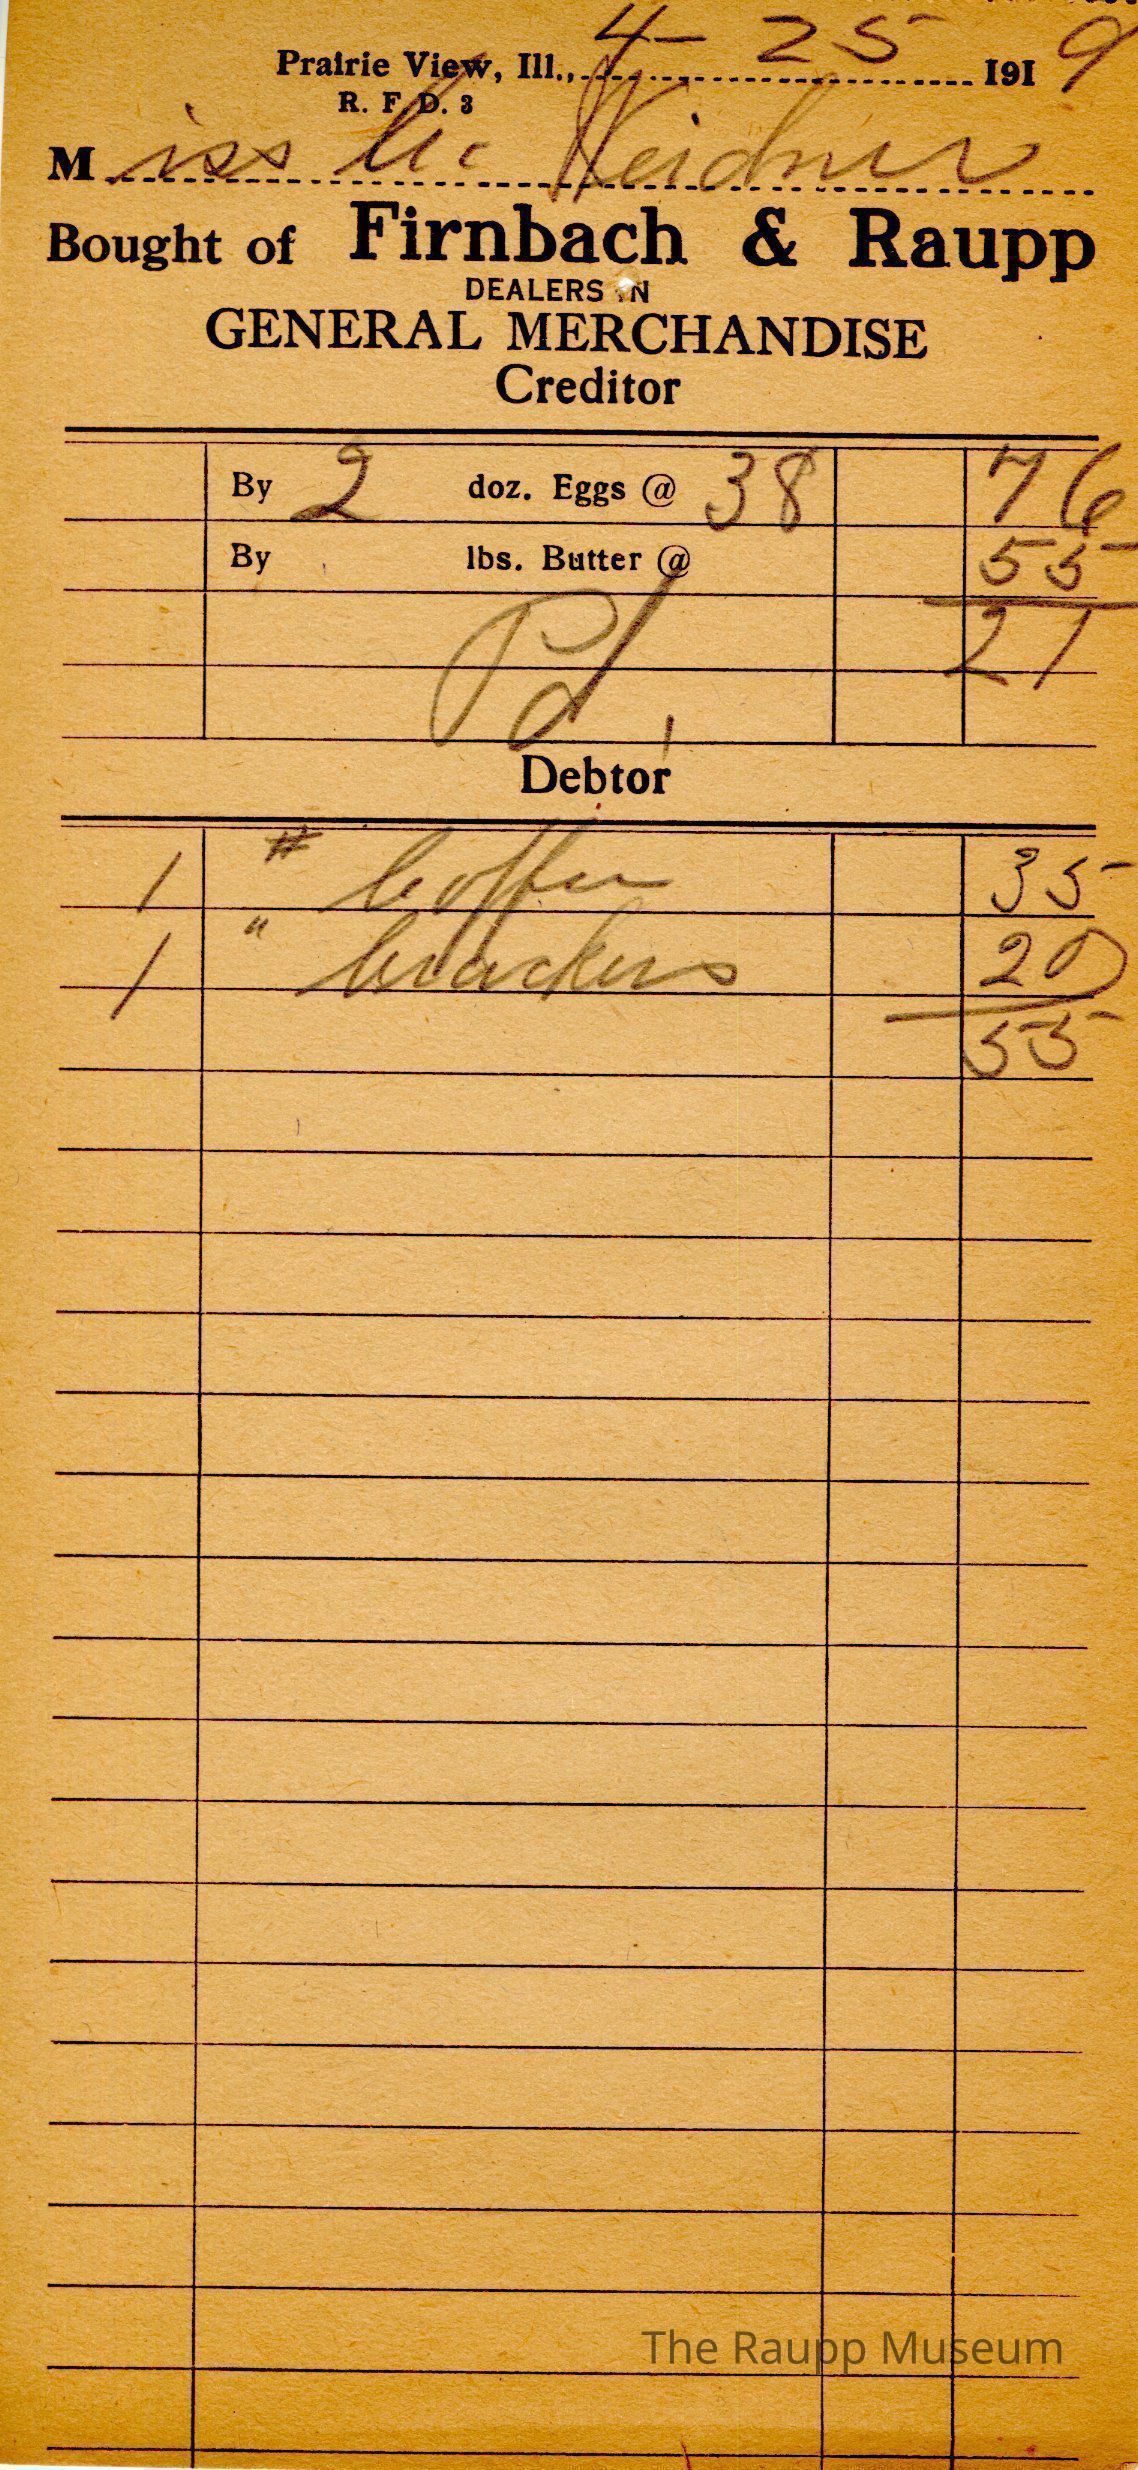 Prairie View, Ill., 4-25 1919
R. F. D. 3
Miss Weidner
Bought of Firnbach & Raupp
DEALERS IN
GENERAL MERCHANDISE
Creditor
By 2 doz. Eggs @ 38 76
By lbs. Butter @ 55
Pd 21
Debtor
1 # Coffee 35
1 " Crackers 20
55
The Raupp Museum